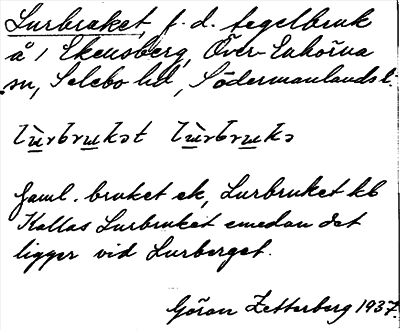 Lurbruket, f. d. tegelbruk
å 1 Ekensberg, Över-Enhörna
sn, Selebo hd, Södermanlands l.
Gaml. bruket ek, Lurbruket kb
Kallas Lurbruket emedan det
ligger vid Lurberget.
Göran Zetterberg 1937.